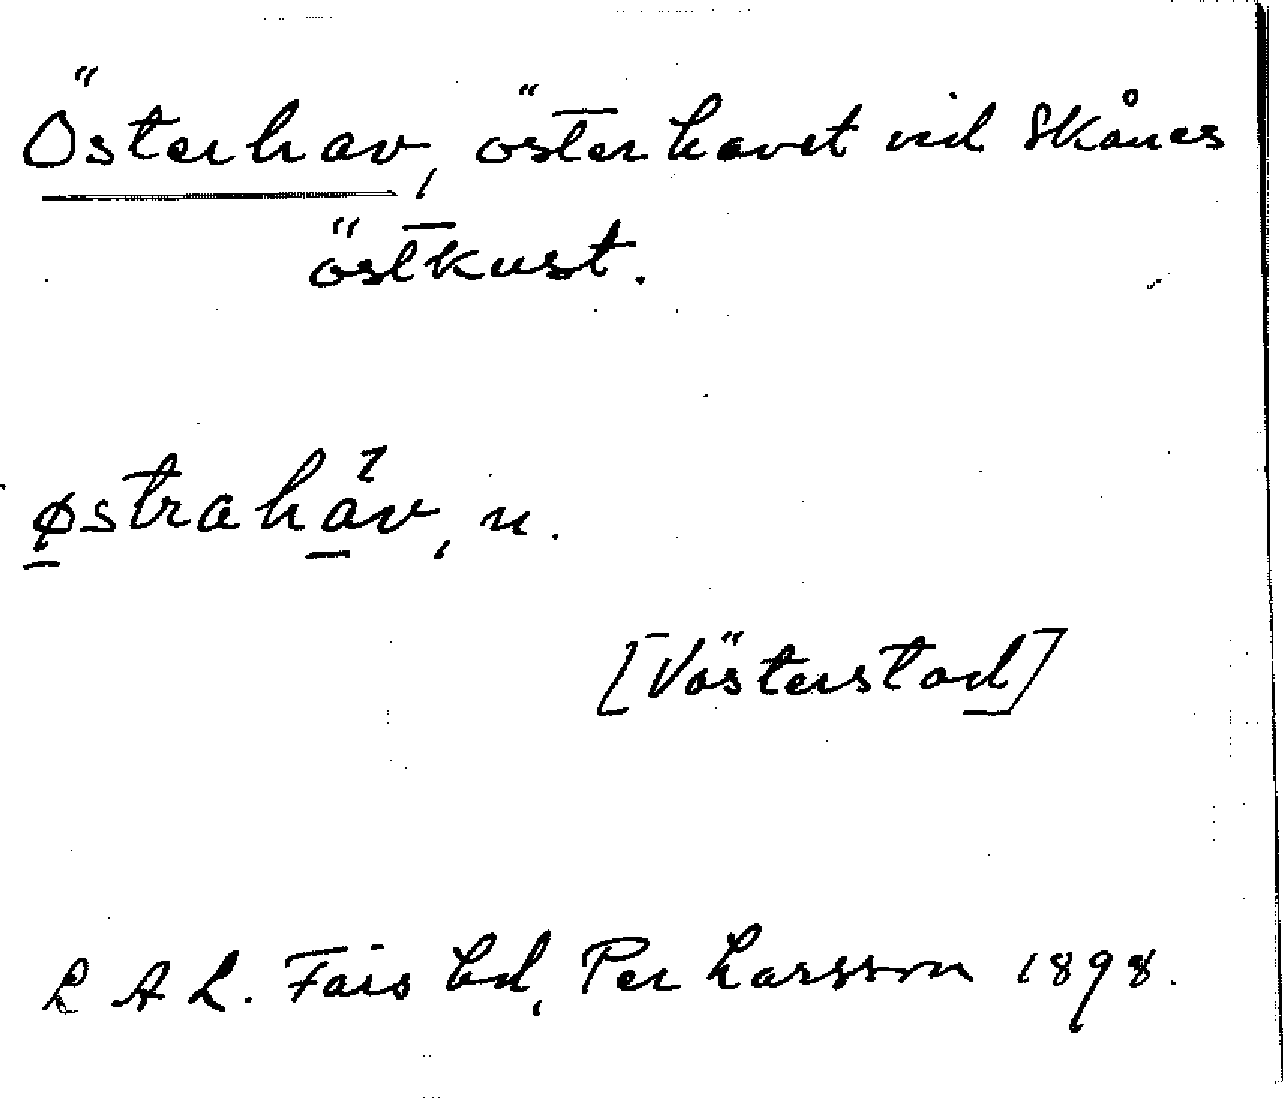 Österhav, österhavet vid Skånes
östkust.
østrahav, n.
[Västerstad]
L A L. Fårs hd, Per Larsson 1898.